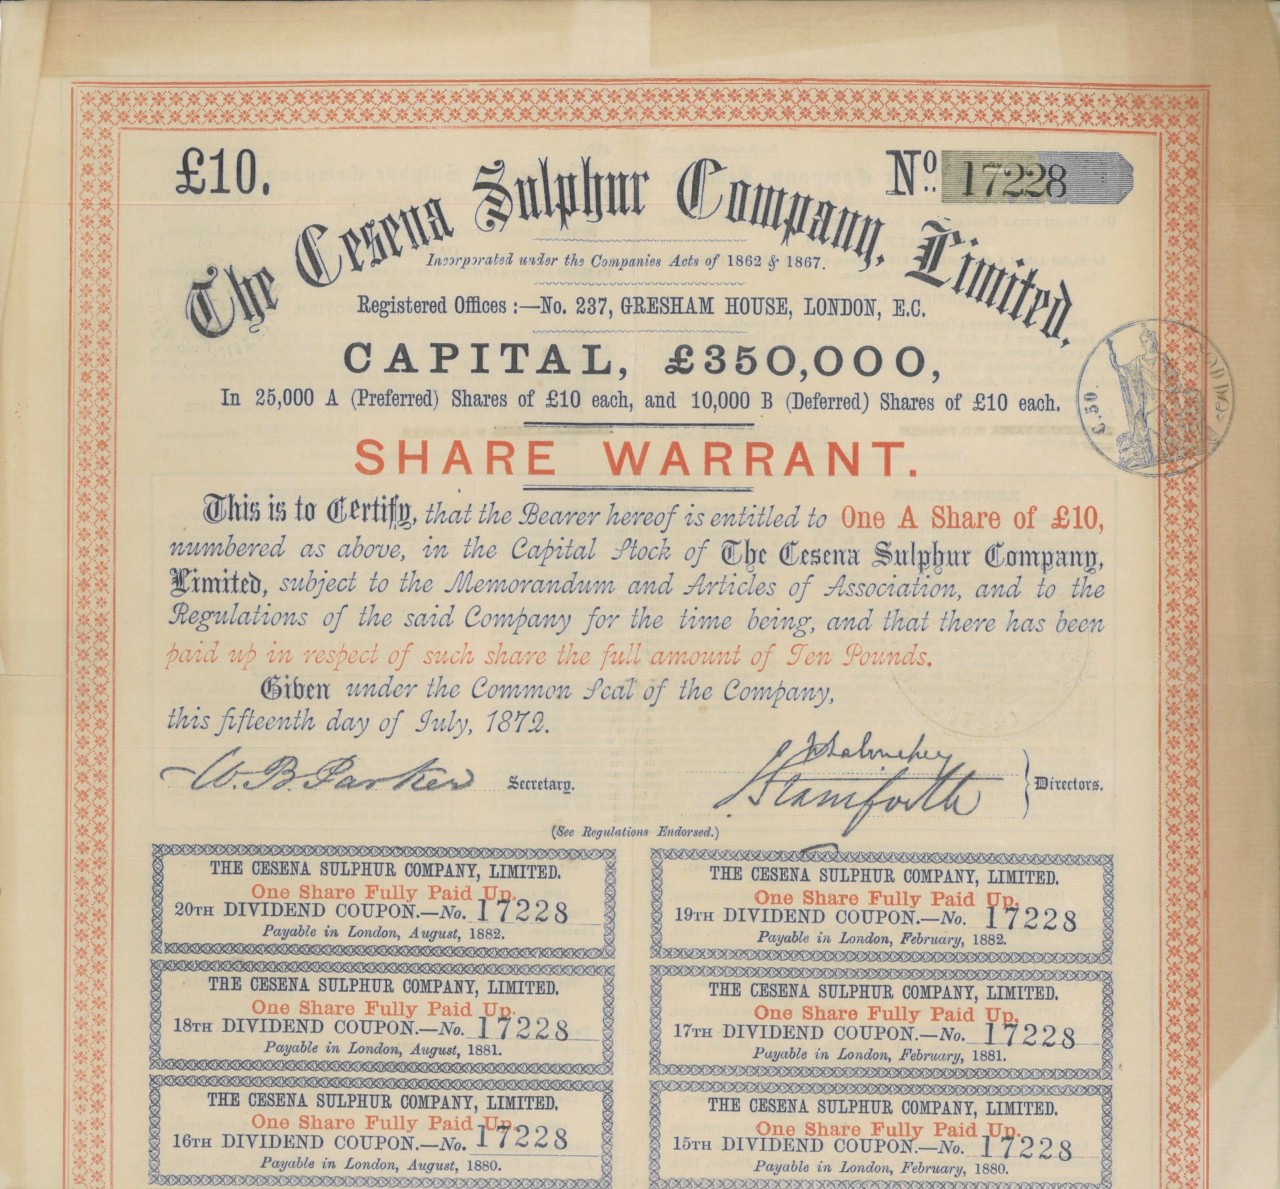 £10.
Nº. 17228
The Cesena Sulphur Company, Limited,
Incorporated under the Companies Acts of 1862 & 1867.
Registered Offices :—No. 237, GRESHAM HOUSE, LONDON, E.C.
CAPITAL, £350,000,
In 25,000 A (Preferred) Shares of £10 each, and 10,000 B (Deferred) Shares of £10 each.
SHARE WARRANT.
This is to Certify, that the Bearer hereof is entitled to One A Share of £10,
numbered as above, in the Capital Stock of The Cesena Sulphur Company,
Limited, subject to the Memorandum and Articles of Association, and to the
Regulations of the said Company for the time being, and that there has been
paid up in respect of such share the full amount of Ten Pounds.
Given under the Common Seal of the Company,
this fifteenth day of July, 1872.
W. B. Parker Secretary.
Stamforth Directors.
(See Regulations Endorsed.)
THE CESENA SULPHUR COMPANY, LIMITED.
One Share Fully Paid Up.
20TH DIVIDEND COUPON.—No. 17228
Payable in London, August, 1882.
THE CESENA SULPHUR COMPANY, LIMITED.
One Share Fully Paid Up.
19TH DIVIDEND COUPON.—No. 17228
Payable in London, February, 1882.
THE CESENA SULPHUR COMPANY, LIMITED.
One Share Fully Paid Up.
18TH DIVIDEND COUPON.—No. 17228
Payable in London, August, 1881.
THE CESENA SULPHUR COMPANY, LIMITED.
One Share Fully Paid Up.
17TH DIVIDEND COUPON.—No. 17228
Payable in London, February, 1881.
THE CESENA SULPHUR COMPANY, LIMITED.
One Share Fully Paid Up.
16TH DIVIDEND COUPON.—No. 17228
Payable in London, August, 1880.
THE CESENA SULPHUR COMPANY, LIMITED.
One Share Fully Paid Up.
15TH DIVIDEND COUPON.—No. 17228
Payable in London, February, 1880.